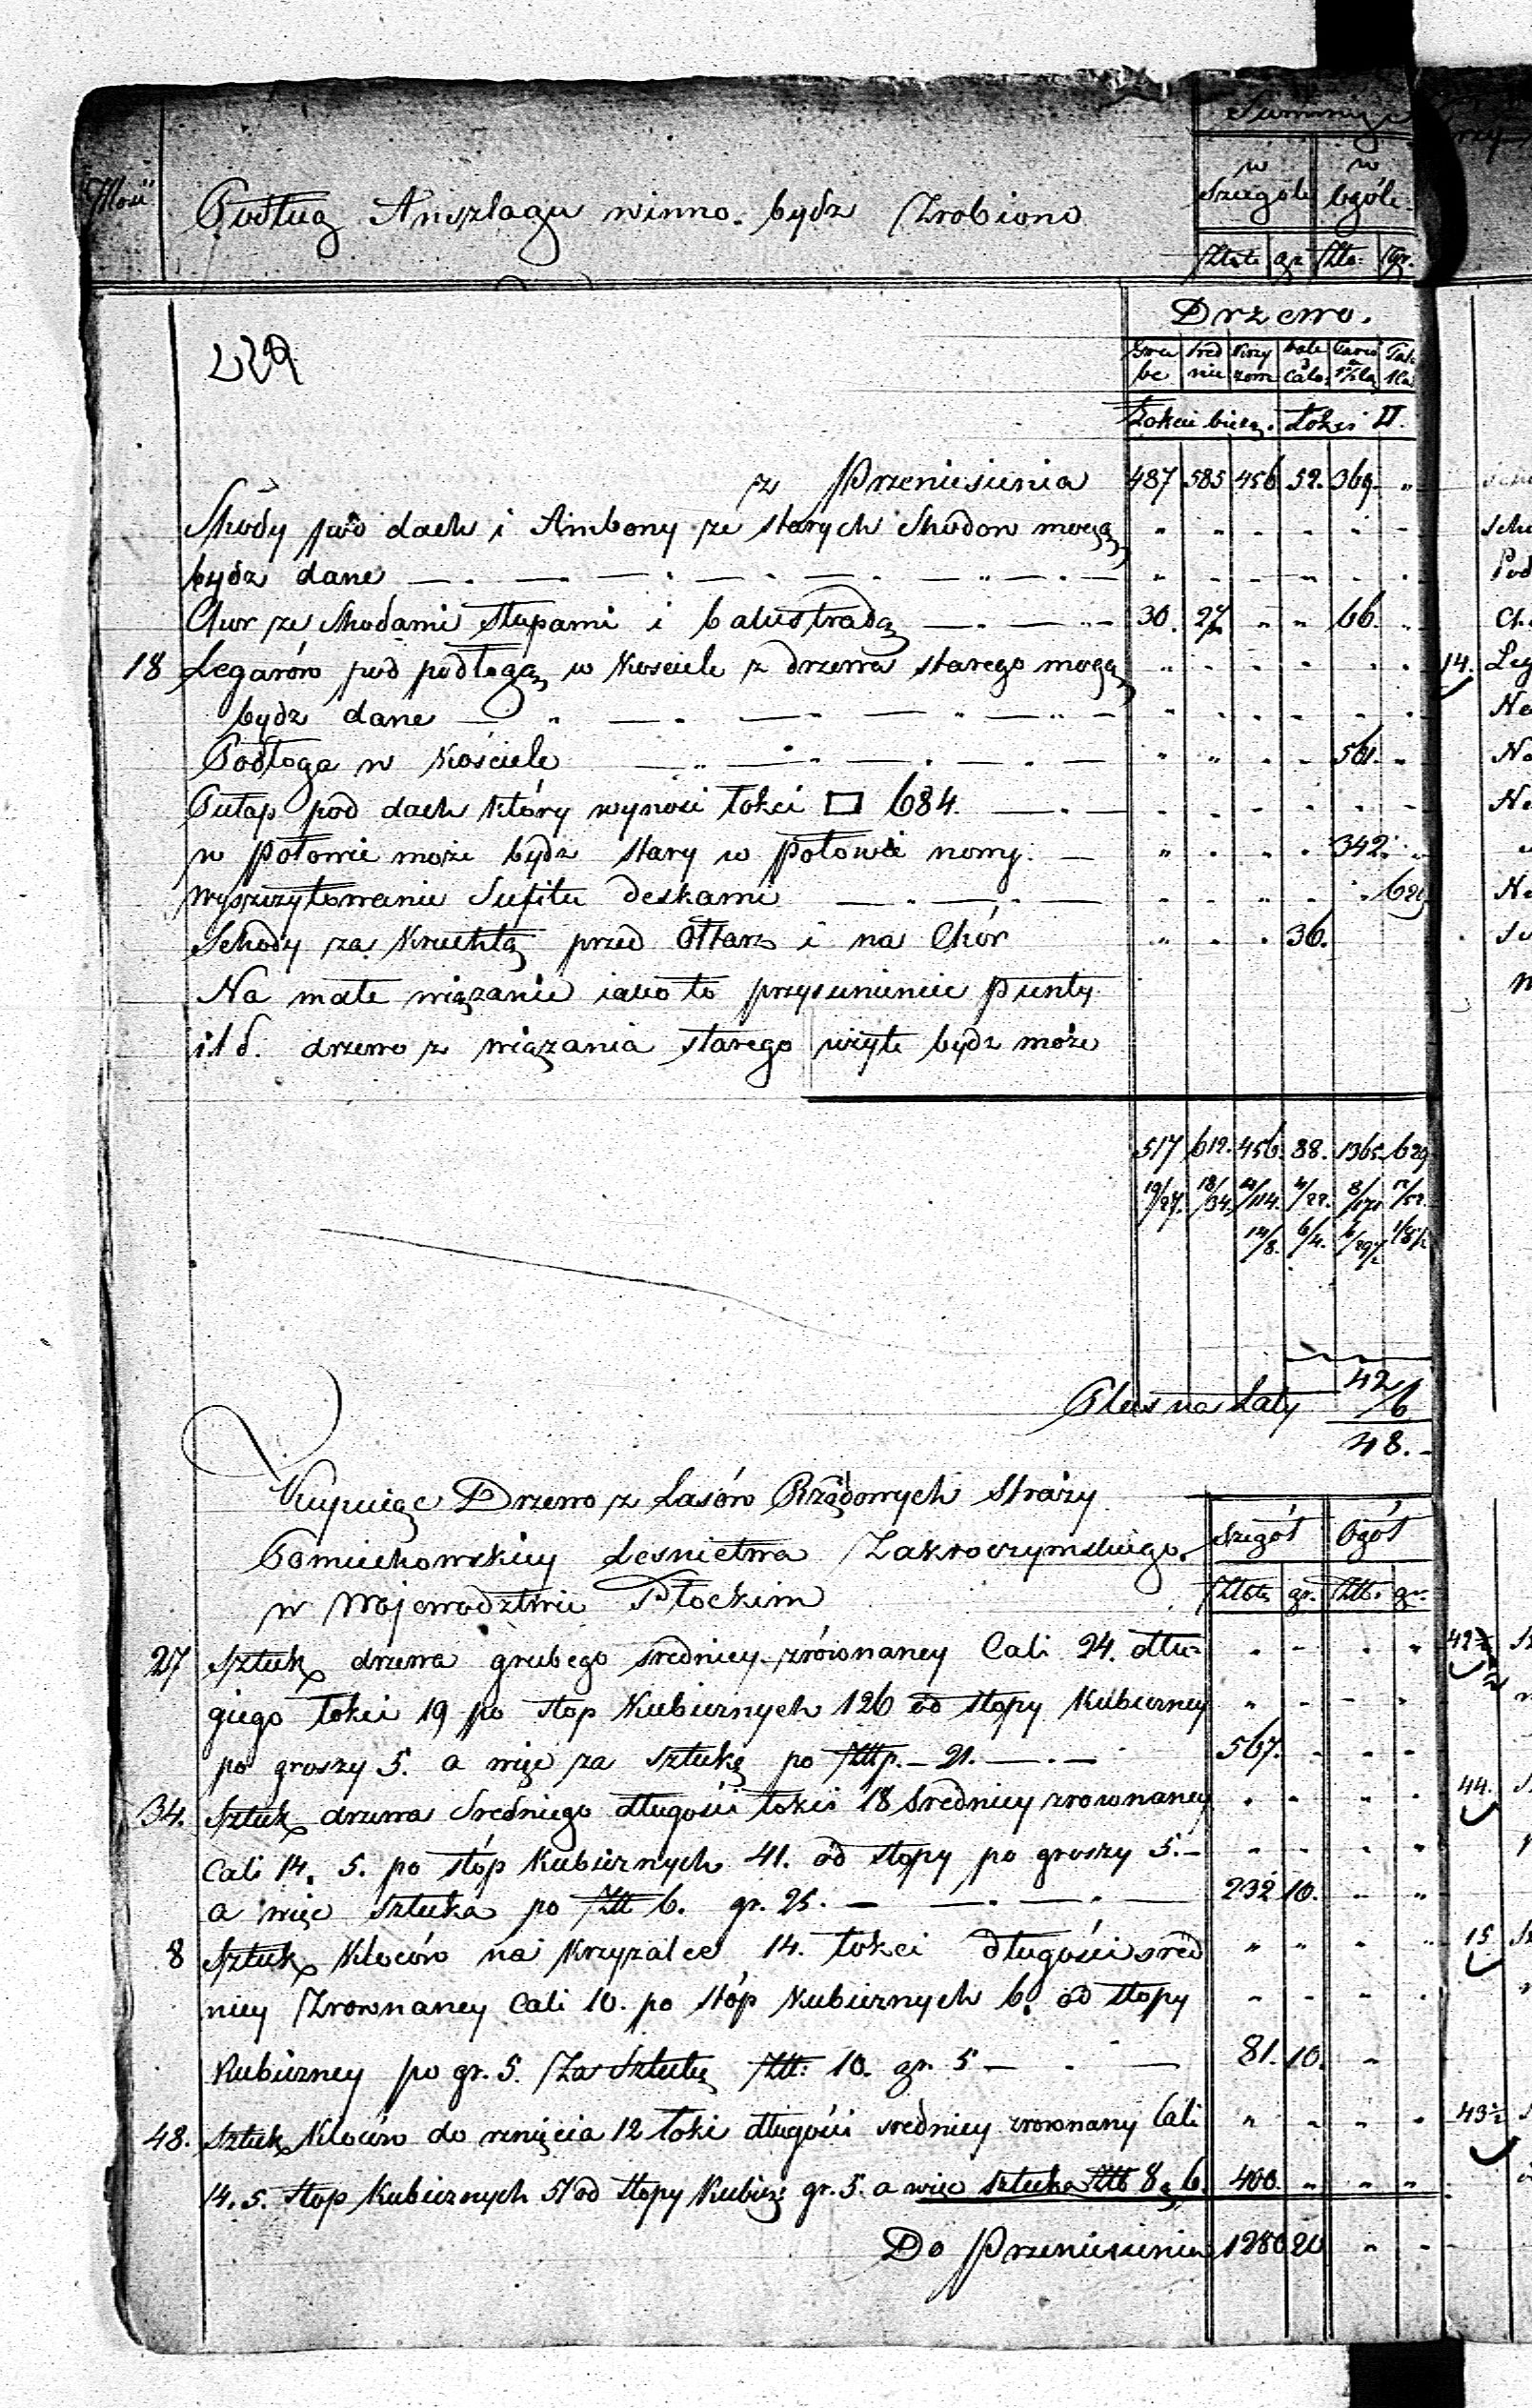 Summy
w Szczególe w Ogóle
Złote gr Złto: Gr.
Ilość Podług Anszlagu winno bydz Zrobiono
Drzewo.
Gru be Śred nie Krzy zow bale 3 Calo:
Łokcie bieżą. Łokci □.
z Przeniesienia 487 585 456 52. 369. "
Skody pod dach i Ambony ze starych Skodow mogą
bydz dane
Chor ze Skodami Słupami i balustradą 30. 27 " " 66.
18 Legarów pod podłogą w Kosciele z drzewa starego mogą
bydz dane
Podłoga w Kościele 561.
Pułap pod dach który wynosi łokci □ 684.
w połowie może bydz stary w połowie nowy. 342.
wyszczytowanie Sufitu deskami 629
Schody za Kruchtą przed Ołtarz i na Chór 36.
Na małe wiązanie iako to przysunienie Punty
itd. drzewo z wiązania starego użyte bydz może
517 612. 456. 88. 1365. 629
19/27. 18/34. 4/114. 4/22. 8/171 12/52.
14/8. 6/4.
42
Plus na Łaty /6
48.
Kupuiąc Drzewo z Lasów Rządowych Straży
Pomiechowskiey Lesnictwa Zakroczymskiego.
w Wojewodztwie Płockim
Szegół Ogół
Złote gr. Złt. gr.
27 Sztuk drzewa grubego średnicy zrównaney Cali 24. dłu-
giego łokci 19 po stop Kubicznych 126 od stopy Kubiczney
po groszy 5. a więc za sztukę po Złłp. – 21. 567.
34. Sztuk drzewa Średniego długości łokci 18 średnicy zrownaney
Cali 14. 5. po stóp Kubicznych 41. od stopy po groszy 5.
a więc sztuka po Złł 6. gr. 25. 232 10.
8 Sztuk Kloców na Krzyzalce 14. łokci długości śred
nicy Zrownaney Cali 10. po stóp Kubicznych 6. od stopy
Kubiczney po gr. 5. Za Sztukę Złł: 10. gr. 5 81. 10.
48. Sztuk Kloców do renięcia 12 łokci długości średnicy zrownany Cali
14. 5. stop Kubicznych 51 od stopy Kubicz: gr. 5. a więc sztuka Złł 8 g 6. 400.
Do Przeniesienia 1280 20
14.
44.
15.